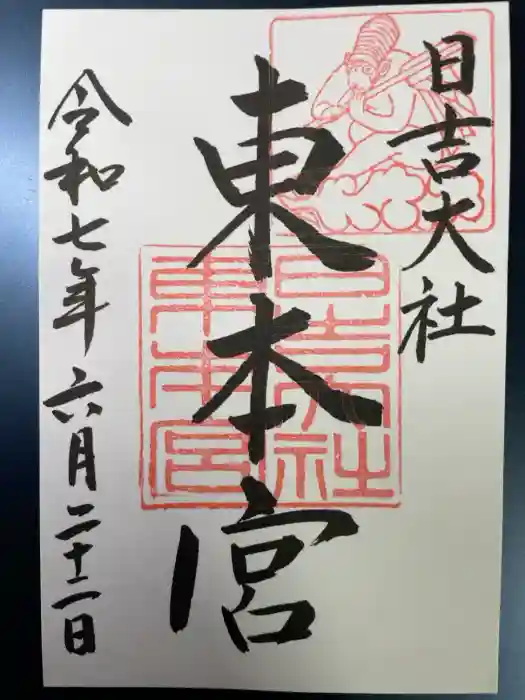 日吉大社
東本宮
令和七年六月二十二日
日吉大社
東本宮